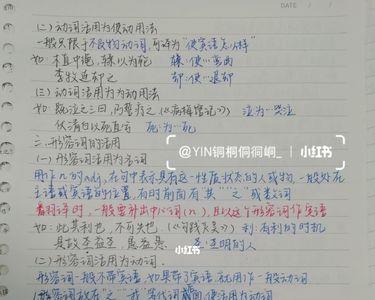 DATE
(二) 动词活用为使动用法
一般只限于不及物动词,可译为"使宾语怎么样"
如: 木直中绳, 輮以为轮 輮: 使…弯曲
李牧连却之 却: 使…退却
(三) 动词活用为为动用法
如: 既泣之三日, 乃葬之《病梅馆记》 泣为…哭泣
伏清白以死直兮 死为…死
三. 形容词的活用
(一) 形容词活用为名词
用作n的adj, 在句中表示具有这一性质状态的人或物, 一般处在
主语或宾语的位置, 有时前面有"其""之"或数词
翻译时, 一般要补出中心词(n), 且以这个形容词作定语
如: 此其利也, 不可失也. 《勾践灭吴》利: 有利的时机
是故圣益圣, 愚益愚. 圣: 圣明的人
(二) 形容词活用为动词.
形容词一般不带宾语, 如果带了宾语, 就用作一般动词
@YIN铜桐侗徊峒_
小红书
小红书